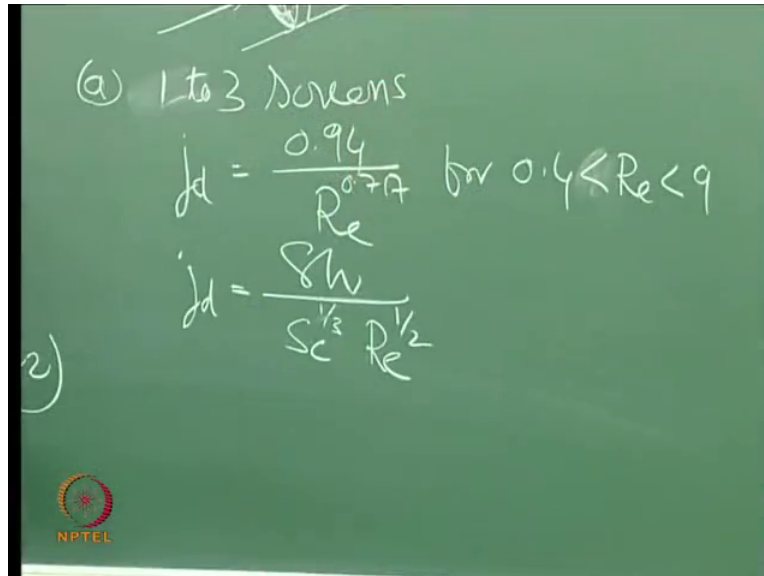 (a) 1 to 3 Screens
jd = 0.94 / Re^0.717 for 0.4 < Re < 9
jd = Sh / Sc^1/3 Re^1/2
2)
NPTEL